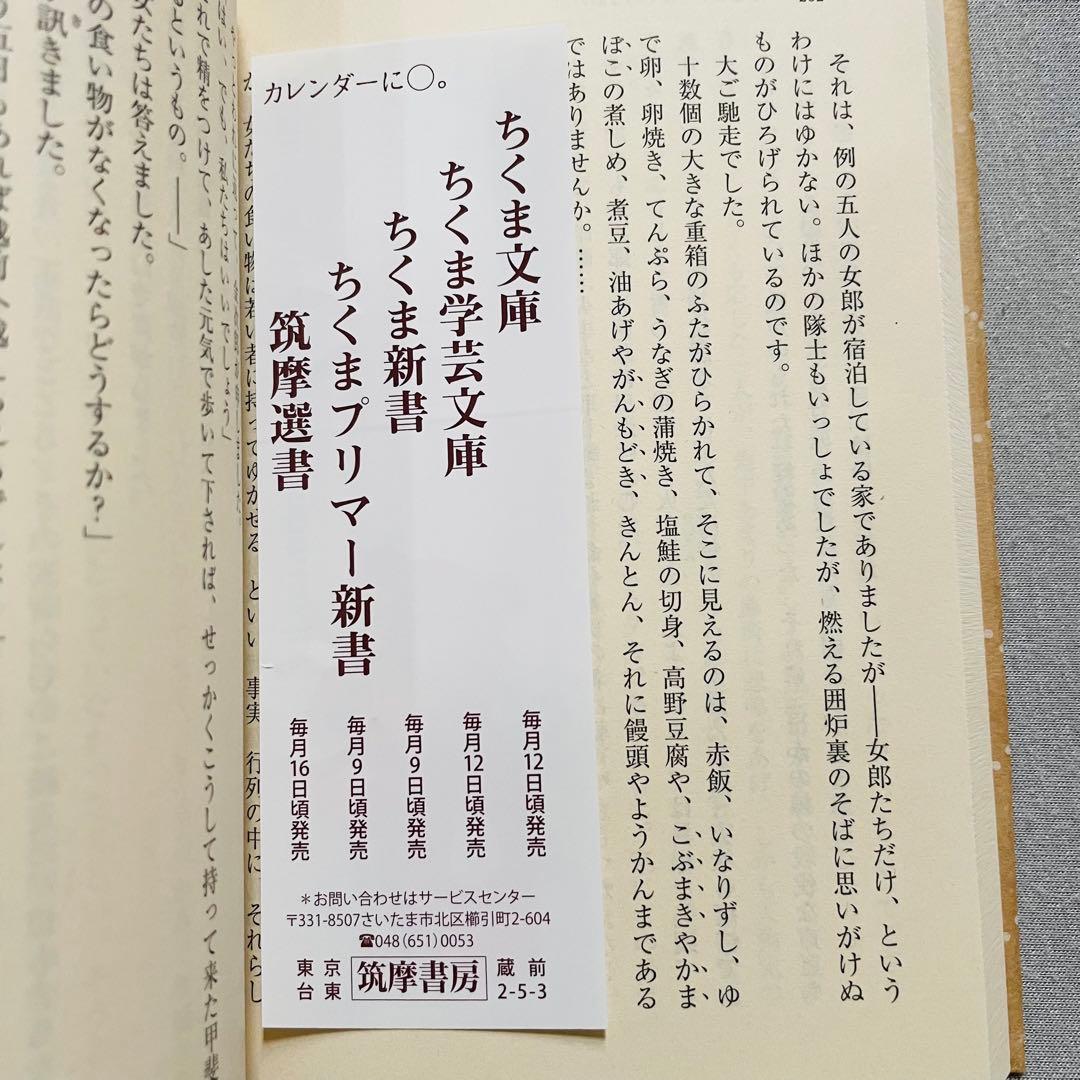 それは、例の五人の女郎が宿泊している家でありましたが――女郎たちだけ、という
わけにはゆかない。ほかの隊士もいっしょでしたが、燃える囲炉裏のそばに思いがけぬ
ものがひろげられているのです。
大ご馳走でした。
十数個の大きな重箱のふたがひらかれて、そこに見えるのは、赤飯、いなりずし、ゆ
で卵、卵焼き、てんぷら、うなぎの蒲焼き、塩鮭の切身、高野豆腐や、こぶまきやかま
ぼこの煮しめ、煮豆、油あげやがんもどき、きんとん、それに饅頭やようかんまである
ではありませんか。……
カレンダーに〇。
ちくま文庫
毎月12日頃発売
ちくま学芸文庫
毎月12日頃発売
ちくま新書
毎月9日頃発売
ちくまプリマー新書
毎月9日頃発売
筑摩選書
毎月16日頃発売
*お問い合わせはサービスセンター
〒331-8507さいたま市北区櫛引町2-604
☎048(651)0053
東京台東 筑摩書房 蔵前2-5-3
女たちの食い物は若い者に持ってゆかせる
といい
事実
行列の中に
それらし
はい、でも、私たちはいいでしょう」
れで精をつけて、あした元気で歩いて下されば、せっかくこうして持って来た甲斐
るというもの。――」
女たちは答えました。
の食い物がなくなったらどうするか?」
訊きました。